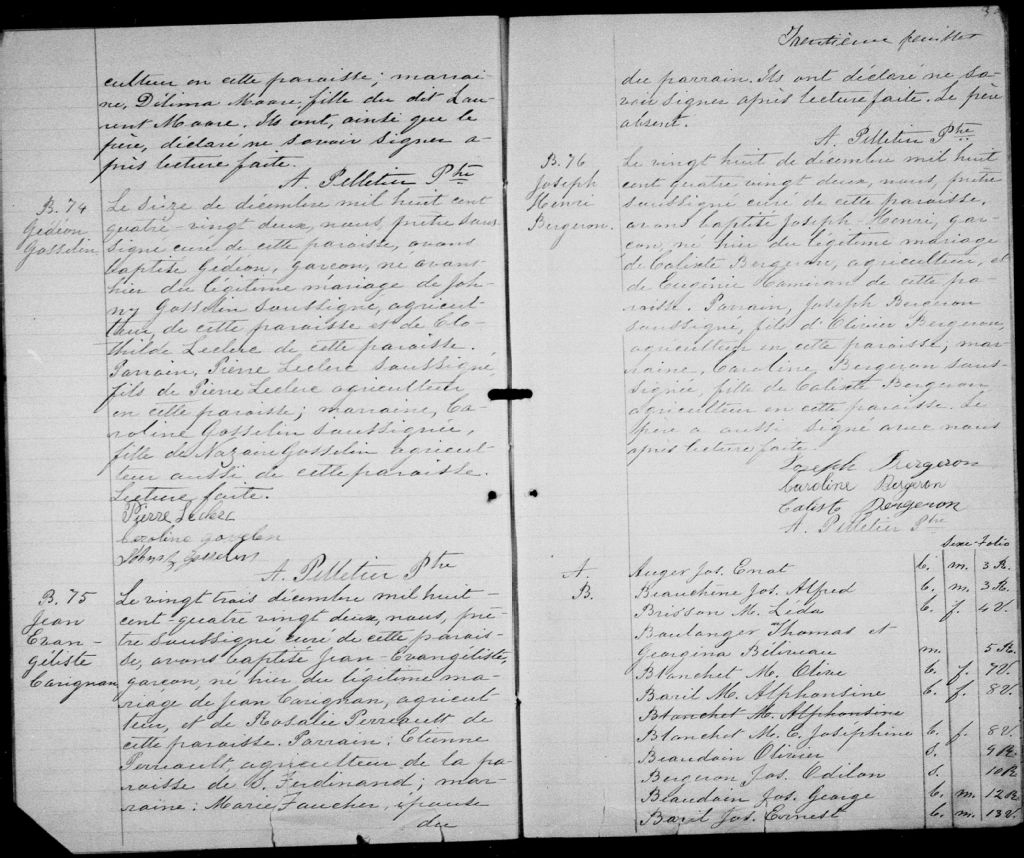 culteur en cette paroisse; marrai-
ne, Délima Moore fille du dit Lau-
rent Moore. Ils ont, ainsi que le
père, déclaré ne savoir signer a-
près lecture faite.
A. Pelletier Ptre
B. 74
Gédéon
Gosselin
Le seize de décembre mil huit cent
quatre-vingt deux, nous, prêtre sous-
signé curé de cette paroisse, avons
baptisé Gédéon, garçon, né avant
hier du légitime mariage de Joh-
ny Gosselin soussigné, agricul-
teur, de cette paroisse et de Clo-
thilde Leclerc de cette paroisse.
Parrain, Pierre Leclerc soussigné,
fils de Pierre Leclerc agriculteur
en cette paroisse; marraine, Ca-
roline Gosselin soussignée,
fille de Nazaire Gosselin agricul-
teur aussi de cette paroisse.
Lecture faite.
Pierre Leclerc
Caroline
Gosselin
A. Pelletier Ptre
B. 75
Jean
Evan-
géliste
Carignan
Le vingt trois décembre mil huit-
cent-quatre vingt deux, nous, prê-
tre soussigné curé de cette parois-
se, avons baptisé Jean-Evangéliste,
garçon, né hier du légitime ma-
riage de Jean Carignan, agricul-
teur, et de Rosalie Perreault de
cette paroisse. Parrain: Etienne
Perreault, agriculteur de la pa-
roisse de S. Ferdinand; mar-
raine: Marie Faucher, épouse
du
Trentième feuillet
du parrain. Ils ont déclaré ne sa-
voir signer après lecture faite. Le père
absent.
A. Pelletier Ptre
B. 76
Joseph
Henri
Bergeron.
Le vingt huit de décembre mil huit
cent quatre vingt deux, nous, prêtre
soussigné curé de cette paroisse,
avons baptisé Joseph Henri, gar-
çon, né hier du légitime mariage
de Calixte Bergeron, agriculteur, et
de Eugénie de cette pa-
roisse. Parrain, Joseph Bergeron
soussigné, fils d'Olivier Bergeron,
agriculteur en cette paroisse; mar-
raine, Caroline Bergeron sous-
signée, fille de Calixte Bergeron,
agriculteur en cette paroisse. Le
père a aussi signé avec nous
après lecture faite.
Joseph Bergeron
Caroline Bergeron
Caliste Bergeron
A. Pelletier Ptre
Sexe-Folio
A. Auger Jos. Enat b. m. 3 R.
B. Beauchine Jos. Alfred b. m. 3 R.
Brisson M. Léda b. f. 4 V.
Boulanger Thomas et
Georgina Béliveau m. 5 R.
Blanchet M. Olive b. f. 7 V.
Baril M. Alphonsine b. f. 8 V.
Blanchet M. Alphonsine
Blanchet M. C. Joséphine b. f. 8 V.
Beaudoin Olivier s. 9 R.
Bergeron Jos. Odilon s. 10 R
Beaudoin Jos. George b. m. 12 R
Baril Jos. Ernest b. m. 13 V.